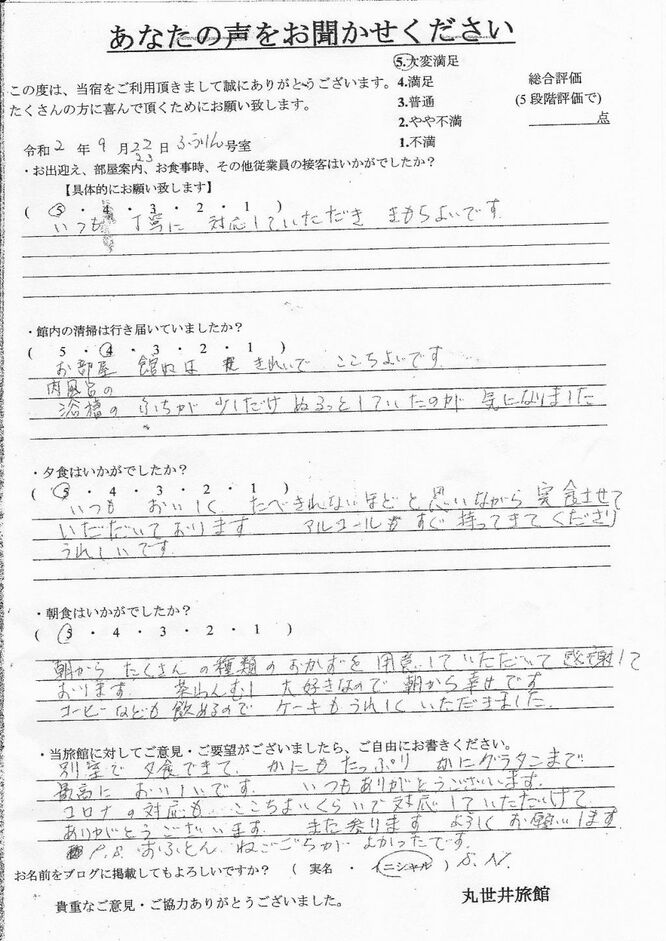 あなたの声をお聞かせください
この度は、当宿をご利用頂きまして誠にありがとうございます。
たくさんの方に喜んで頂くためにお願い致します。
5.大変満足
4.満足
3.普通
2.やや不満
1.不満
総合評価
(5段階評価で)
点
令和2年9月22日 ふうりん号室
23
・お出迎え、部屋案内、お食事時、その他従業員の接客はいかがでしたか？
【具体的にお願い致します】
( 5 ・ 4 ・ 3 ・ 2 ・ 1 )
いつも 丁寧に 対応していただき きもちよいです
・館内の清掃は行き届いていましたか？
( 5 ・ 4 ・ 3 ・ 2 ・ 1 )
お部屋 館内は きれいで ここちよいです
内風呂の
浴槽の ふちが 少しだけ ぬるっとしていたのが 気になりました
・夕食はいかがでしたか？
( 5 ・ 4 ・ 3 ・ 2 ・ 1 )
いつも おいしく たべきれないほどと思いながら 完食させて
いただいております アルコールもすぐ持ってきてくださり
うれしいです
・朝食はいかがでしたか？
( 5 ・ 4 ・ 3 ・ 2 ・ 1 )
朝から たくさんの種類のおかずを用意していただいて感謝して
おります 茶わんむし 大好きなので 朝から幸せです
コーヒーなども飲めるので ケーキもうれしくいただきました
・当旅館に対してご意見・ご要望がございましたら、ご自由にお書きください。
別室で夕食できて、かにもたっぷり かにグラタンまで
最高に おいしいです。 いつもありがとうございます。
コロナの対応も、ここちよいくらいで対応していただいけて
ありがとうございます。 また参ります よろしくお願いします
P.S. おふとん ねごごちが よかったです。
お名前をブログに掲載してもよろしいですか？ ( 実名 ・ イニシャル ) S.N.
貴重なご意見・ご協力ありがとうございました。
丸世井旅館